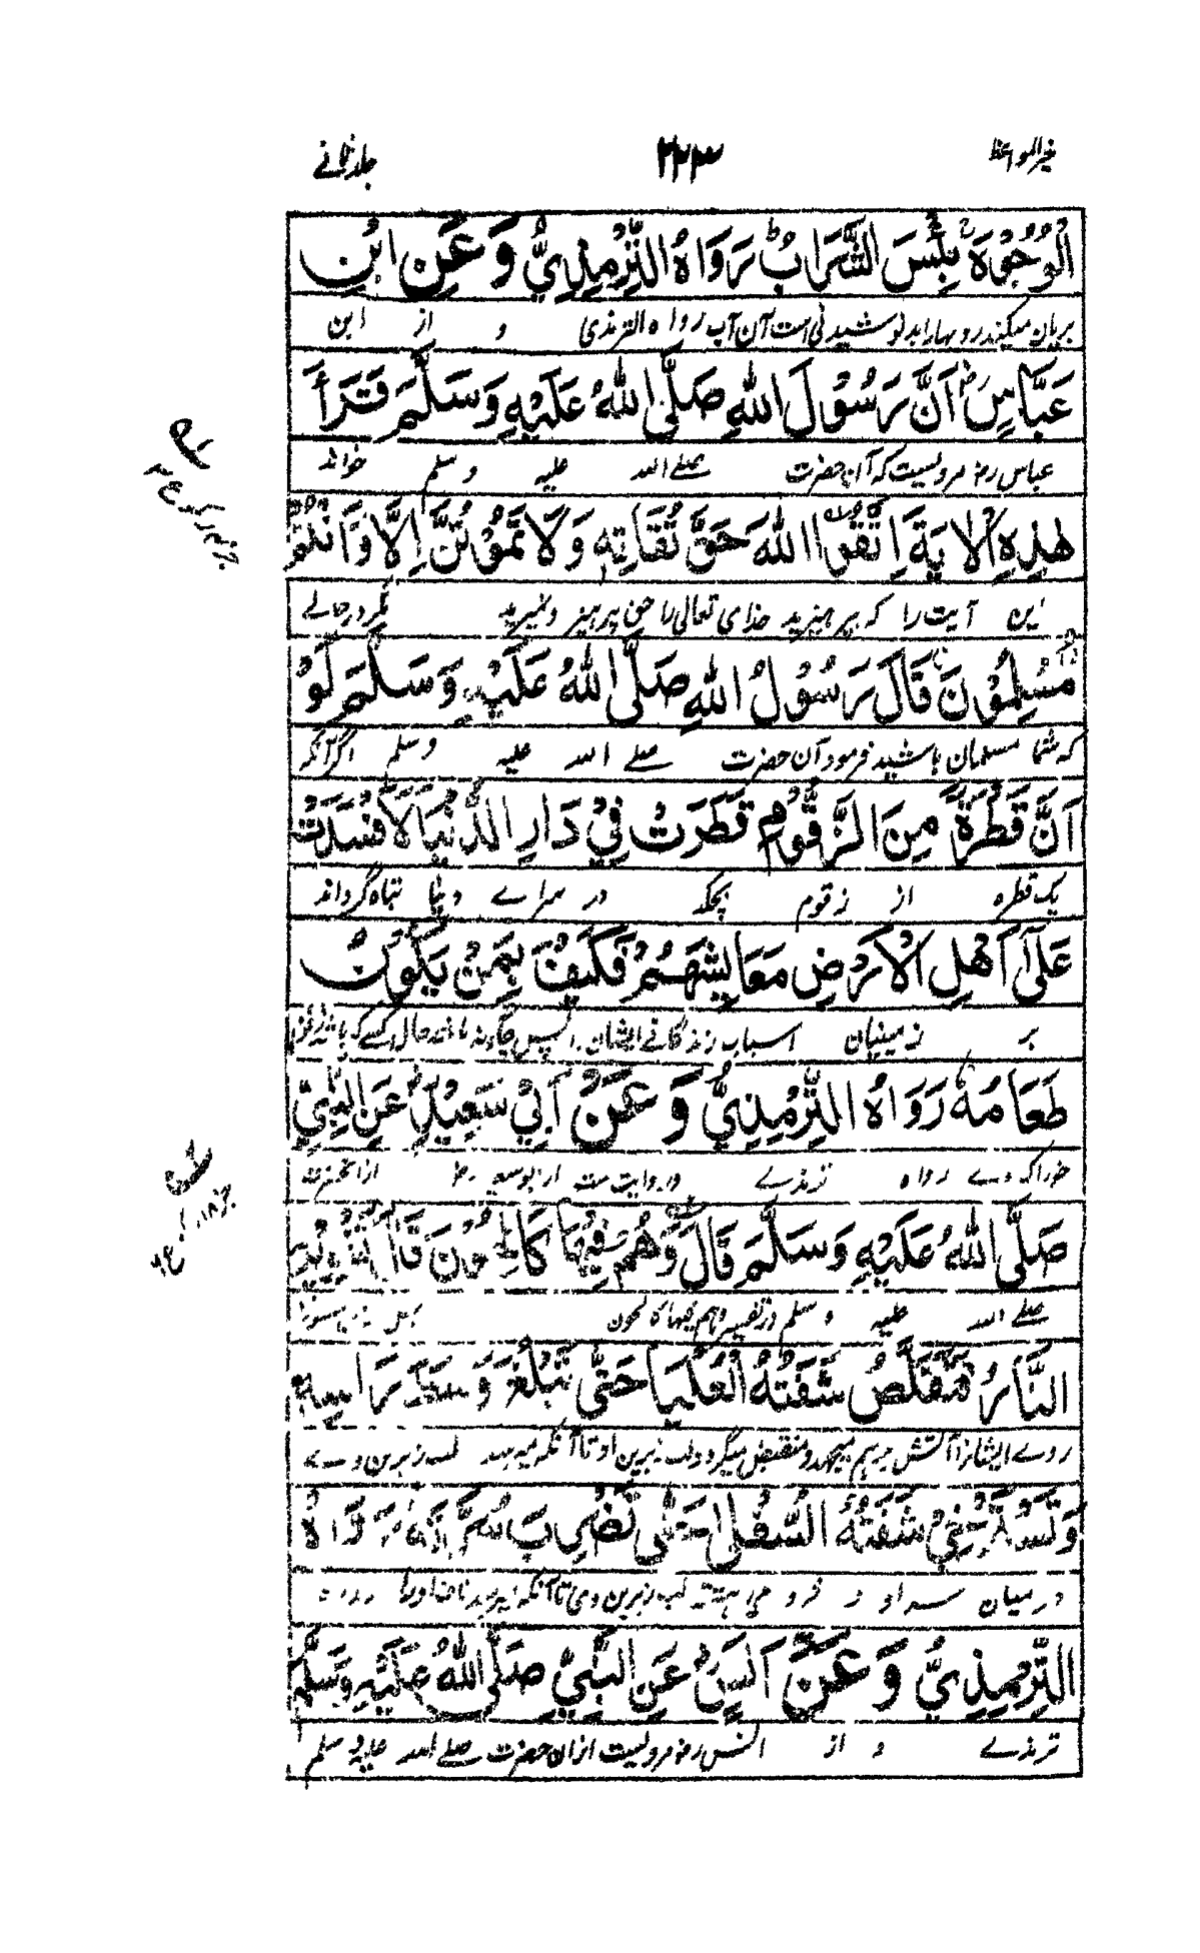 خیر المواعظ ۲۲۳ جلد ثانی
الْوُجُوْهَ بِئْسَ الشَّرَابُ رَوَاهُ التِّرْمِذِيُّ وَعَنِ ابْنِ
بریان میکند رو بہا را بد نوشیدنی است آن آب رواہ الترمذی و از ابن
عَبَّاسٍ اَنَّ رَسُوْلَ اللهِ صَلَّى اللهُ عَلَيْهِ وَسَلَّمَ قَرَأَ
عباس رض مرویست کہ آن حضرت صلے اللہ علیہ وسلم خواند
هٰذِهِ الْاٰيَةَ اِتَّقُوا اللهَ حَقَّ تُقَاتِهٖ وَلَا تَمُوْتُنَّ اِلَّا وَاَنْتُمْ
این آیت را کہ بپرہیزید خدای تعالی را حق پرہیز و نمیرید مگر در حالے
مُسْلِمُوْنَ قَالَ رَسُوْلُ اللهِ صَلَّى اللهُ عَلَيْهِ وَسَلَّمَ لَوْ
کہ شما مسلمان باشید فرمود آن حضرت صلے اللہ علیہ وسلم اگر آنکہ
اَنَّ قَطْرَةً مِنَ الزَّقُّوْمِ قَطَرَتْ فِيْ دَارِ الدُّنْيَا لَاَفْسَدَتْ
یک قطرہ از زقوم بچکد در سراے دنیا تباہ گرداند
عَلٰى اَهْلِ الْاَرْضِ مَعَايِشَهُمْ فَكَيْفَ بِمَنْ يَكُوْنُ
بر زمینیان اسباب زندگانی ایشان پس چگونہ باشد حال کسے کہ باشد
طَعَامُهٗ رَوَاهُ التِّرْمِذِيُّ وَعَنْ اَبِيْ سَعِيْدٍ عَنِ النَّبِيِّ
خوراک وے رواہ ترمذے و روایت ست از ابو سعید رض از آنحضرت
صَلَّى اللهُ عَلَيْهِ وَسَلَّمَ قَالَ وَهُمْ فِيْهَا كَالِحُوْنَ قَالَ
صلے اللہ علیہ وسلم در تفسیر وہم فیہا کالحون
النَّارُ فَتَقَلَّصُ شَفَتُهُ الْعُلْيَا حَتّٰى تَبْلُغَ وَسَطَ رَاْسِهٖ
روے ایشانرا آتش برہم میجہد و منقبض میگردد لب زیرین او تا آنکہ میرسد لب زبرین وے
وَتَسْتَرْخِيْ شَفَتُهُ السُّفْلٰى حَتّٰى تَضْرِبَ سُرَّتَهٗ رَوَاهُ
درمیان سر او و فرو می لب زیرین وی تا آنکہ
التِّرْمِذِيُّ وَعَنْ اَنَسٍ عَنِ النَّبِيِّ صَلَّى اللهُ عَلَيْهِ وَسَلَّمَ
ترمذے و از انس رض مرویست از ان حضرت صلے اللہ علیہ وسلم